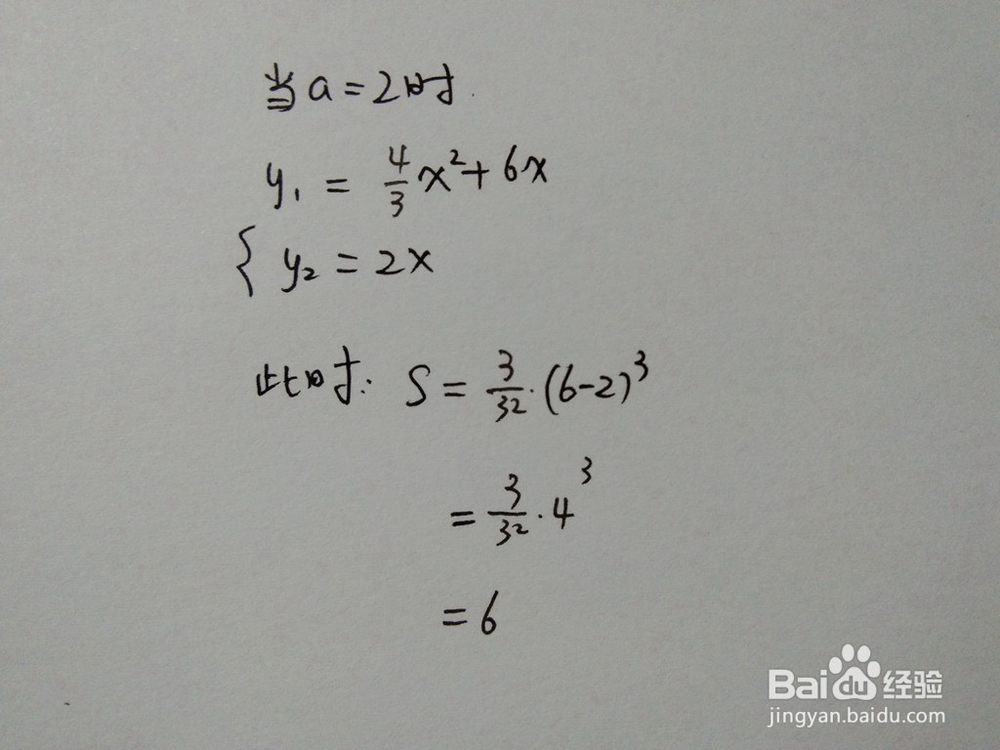 当a=2时.
y₁ = 4/3 x²+6x
{ y₂ = 2x
此时: S = 3/32·(6-2)³
= 3/32·4³
= 6
Baidu经验
jingyan.baidu.com